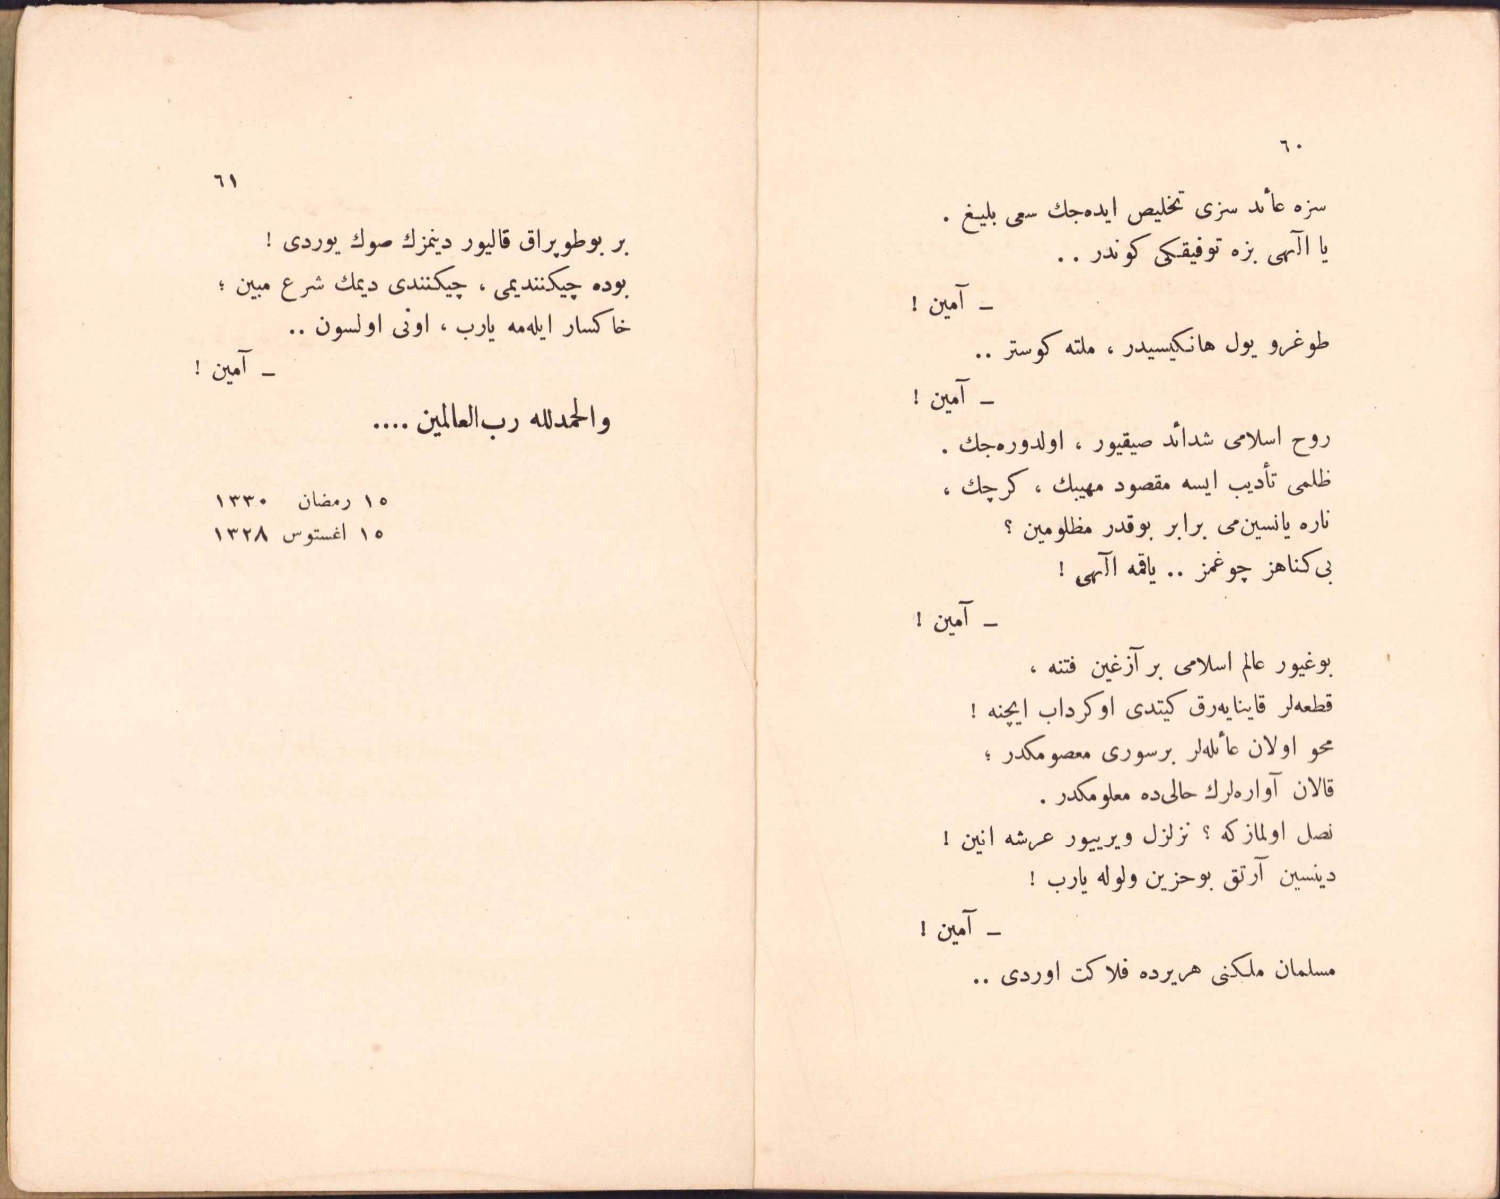 ٦٠
سزه عائد سزی تخلیص ایده‌جك سعی بلیغ .
یا الٓهی بزه توفیقكی كوندر . .
ــ آمین !
طوغرو یول هانكیسیدر ، ملته كوستر . .
ــ آمین !
روح اسلامی شدائد صیقیور ، اولدوره‌جك .
ظلمی تأدیب ایسه مقصود مهیبك ، كرچك ،
ناره یانسین‌می برابر بوقدر مظلومین ؟
بی‌كناهز چوغمز . . یاقمه الٓهی !
ــ آمین !
بوغیور عالم اسلامی بر آزغین فتنه ،
قطعه‌لر قاینایه‌رق كیتدی اوكرداب ایچنه !
محو اولان عائله‌لر برسوری معصومكدر ؛
قالان آواره‌لرك حالی‌ده معلومكدر .
نصل اولمازكه ؟ تزلزل ویرییور عرشه انین !
دینسین آرتق بوحزین ولوله یارب !
ــ آمین !
مسلمان ملكنی هریرده فلاكت اوردی . .
٦١
بر بوطوپراق قالیور دینمزك صوك یوردی !
بوده چیكنندیمی ، چیكنندی دیمك شرع مبین ؛
خاكسار ایله‌مه یارب ، اونی اولسون . .
ــ آمین !
والحمدلله رب‌العالمین ....
١٥ رمضان ١٣٣٠
١٥ اغستوس ١٣٢٨